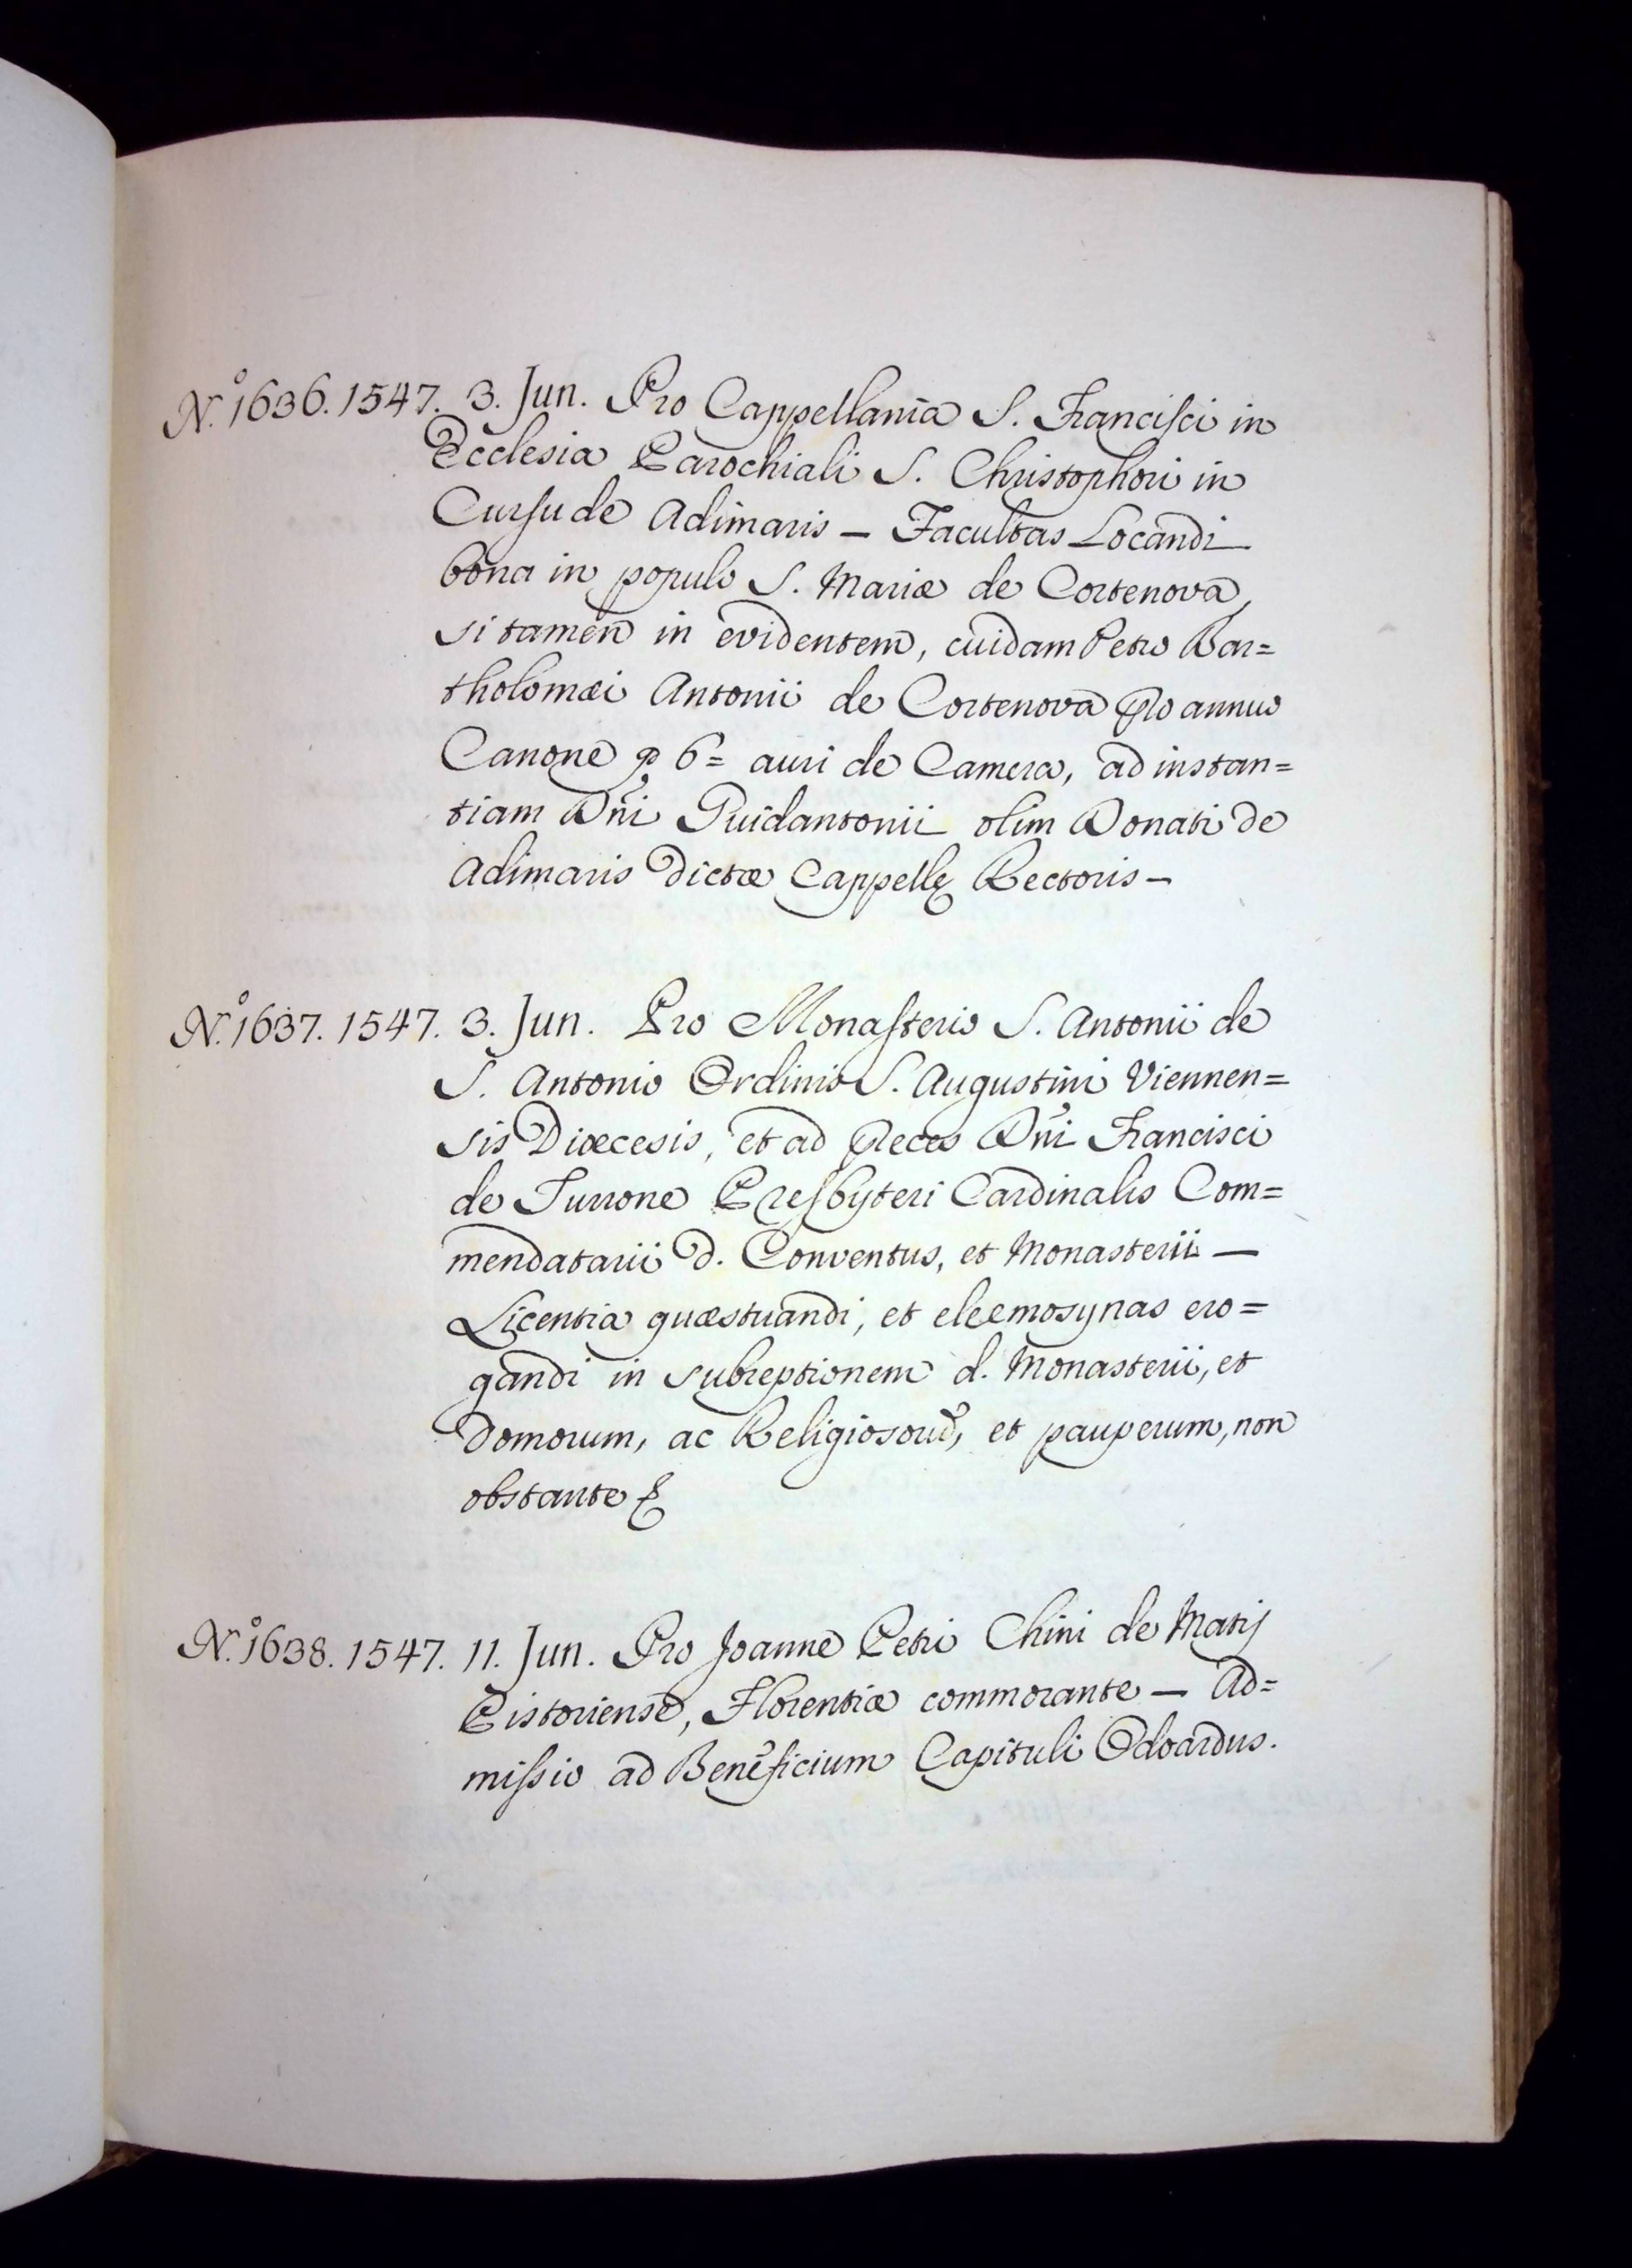 N.º 1636. 1547. 3. Jun. Pro Cappellania S. Francisci in
Ecclesia Parochiali S. Christophori in
Cursu de Adimaris — Facultas Locandi
bona in populo S. Mariæ de Cortenova,
si tamen in evidentem, cuidam Petro Bar=
tholomæi Antonii de Cortenova pro annuo
Canone 6= auri de Camera, ad instan=
tiam Dñi Guidantonii olim Donati de
Adimaris dictæ Cappellę Rectoris —
N.º 1637. 1547. 3. Jun. Pro Monasterio S. Antonii de
S. Antonio Ordinis S. Augustini Viennen=
sis Diœcesis, et ad preces Dñi Francisci
de Turrone Presbyteri Cardinalis Com=
mendatarii d. Conventus, et Monasterii —
Licentia quæstuandi, et eleemosynas ero=
gandi in subreptionem d. Monasterii, et
domorum, ac Religiosorũ, et pauperum, non
obstante &
N.º 1638. 1547. 11. Jun. Pro Joanne Petri Chini de Matij
Pistoriense, Florentiæ commorante — Ad=
missio ad Beneficium Capituli Odoardus.